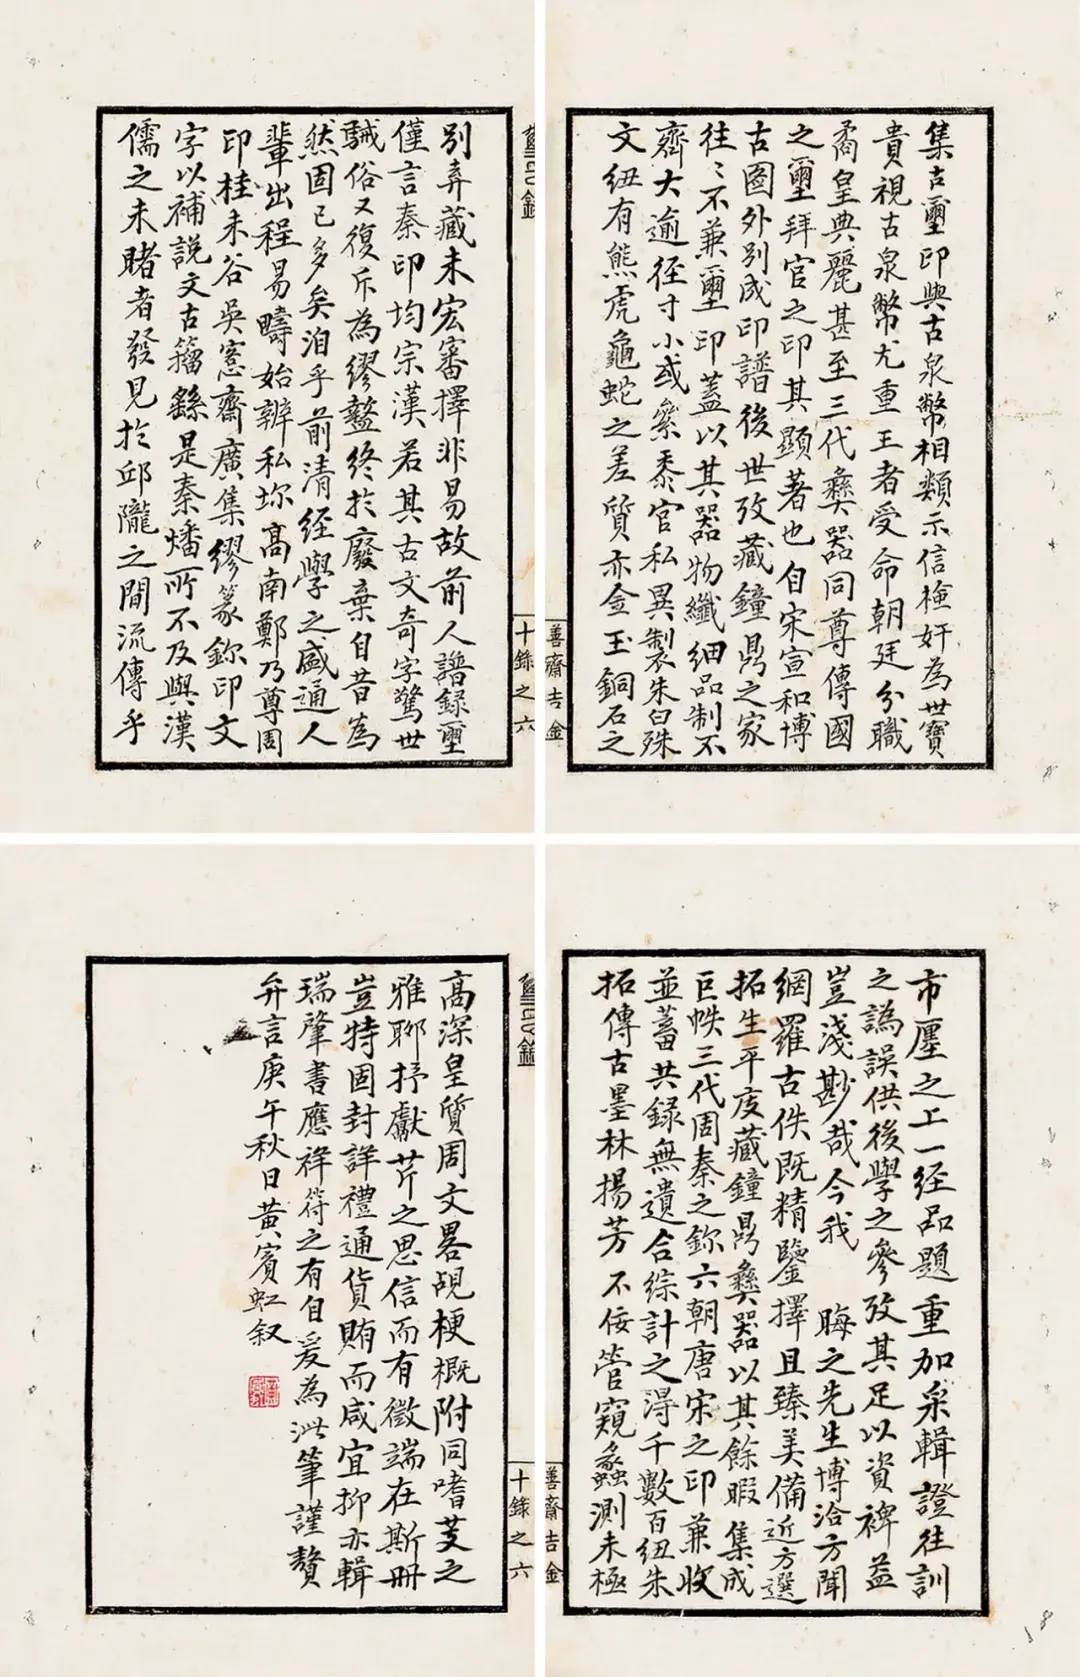 集古璽印與古泉幣相類示信檢奸為世寶
貴視古泉幣尤重王者受命朝廷分職
矞皇典麗甚至三代彝器同尊傳國
之璽拜官之印其顯著也自宋宣和博
古圖外別成印譜後世攷藏鐘鼎之家
往〻不兼璽印蓋以其器物纖細品制不
齊大逾徑寸小或絫黍官私異製朱白殊
文紐有熊虎龜蛇之差質亦金玉銅石之
善齋吉金
十錄之六
璽印錄
別弆藏未宏審擇非易故前人譜録璽
僅言秦印均宗漢若其古文奇字驚世
駴俗又復斥為繆盭終於廢棄自昔為
然固已多矣洎乎前清經學之盛通人
輩出程易疇始辨私坏高南鄭乃尊周
印桂未谷吳愙齋廣集繆篆鉨印文
字以補說文古籀繇是秦燔所不及與漢
儒之未睹者發見於邱隴之間流傳乎
市廛之上一經品題重加采輯證往訓
之譌誤供後學之參攷其足以資裨益
豈淺尠哉今我 晦之先生博洽方聞
網羅古佚既精鑒擇且臻美備近方選
拓生平庋藏鐘鼎彝器以其餘暇集成
巨帙三代周秦之鉨六朝唐宋之印兼收
並蓄共録無遺合綜計之淂千數百紐朱
拓傳古墨林揚芳不佞管窺蠡測未極
善齋吉金
十錄之六
璽印錄
高深皇質周文畧覘梗概附同嗜芰之
雅聊抒獻芹之思信而有徵端在斯冊
豈特固封詳禮通貨賄而咸宜抑亦輯
瑞肇書應祥符之有自爰為泚筆謹贅
弁言庚午秋日黃賓虹叙